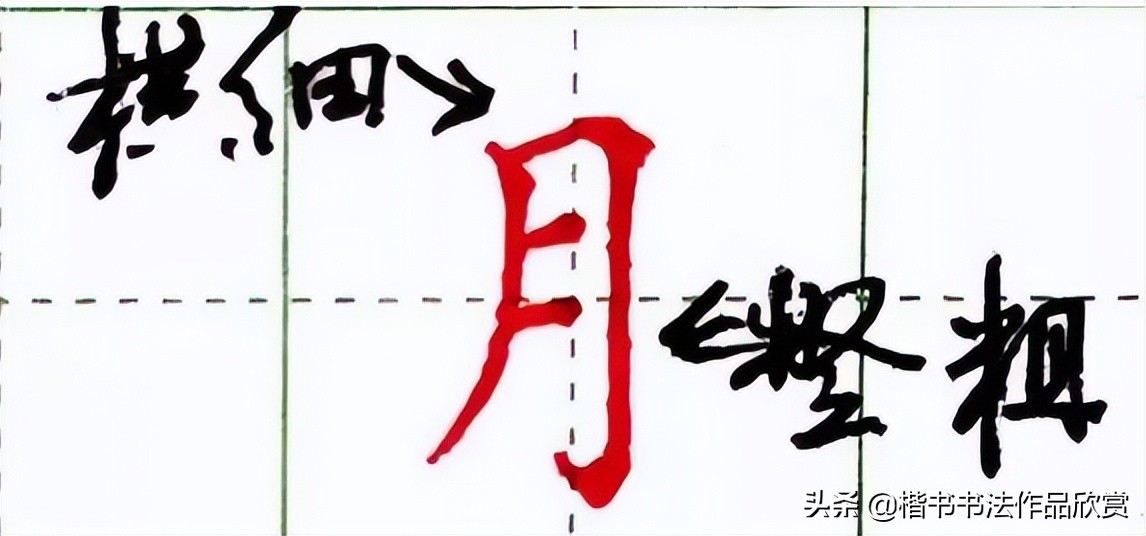 横细
月
竖粗
头条 @楷书书法作品欣赏